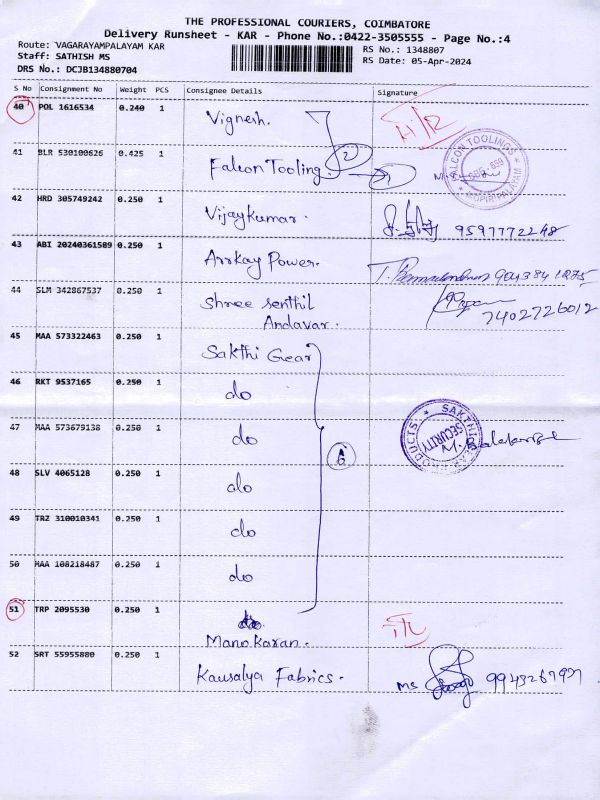 THE PROFESSIONAL COURIERS, COIMBATORE
Delivery Runsheet - KAR - Phone No.:0422-3505555 - Page No.:4
Route: VAGARAYAMPALAYAM KAR
RS No.: 1348807
Staff: SATHISH MS
RS Date: 05-Apr-2024
DRS No.: DCJB134880704
S No Consignment No Weight PCS Consignee Details Signature
40 POL 1616534 0.240 1 Vignesh.
41 BLR 530100626 0.425 1 Falcon Tooling. 2
FALCON TOOLINGS
42 HRD 305749242 0.250 1 Vijaykumar. 9597772248
43 ABI 20240361589 0.250 1 Arrkay Power. 9043841275
44 SLM 342867537 0.250 1 Shree Senthil
Andavar. 7402726012
45 MAA 573322463 0.250 1 Sakthi Gear
46 RKT 9537165 0.250 1 do
47 MAA 573679138 0.250 1 do 6
SAKTHI GEAR PRODUCTS
SECURITY
48 SLV 4065128 0.250 1 do
49 TRZ 310010341 0.250 1 do
50 MAA 108218487 0.250 1 do
51 TRP 2095530 0.250 1
Manokaran.
52 SRT 55955880 0.250 1 Kausalya Fabrics. Ms 9943267997